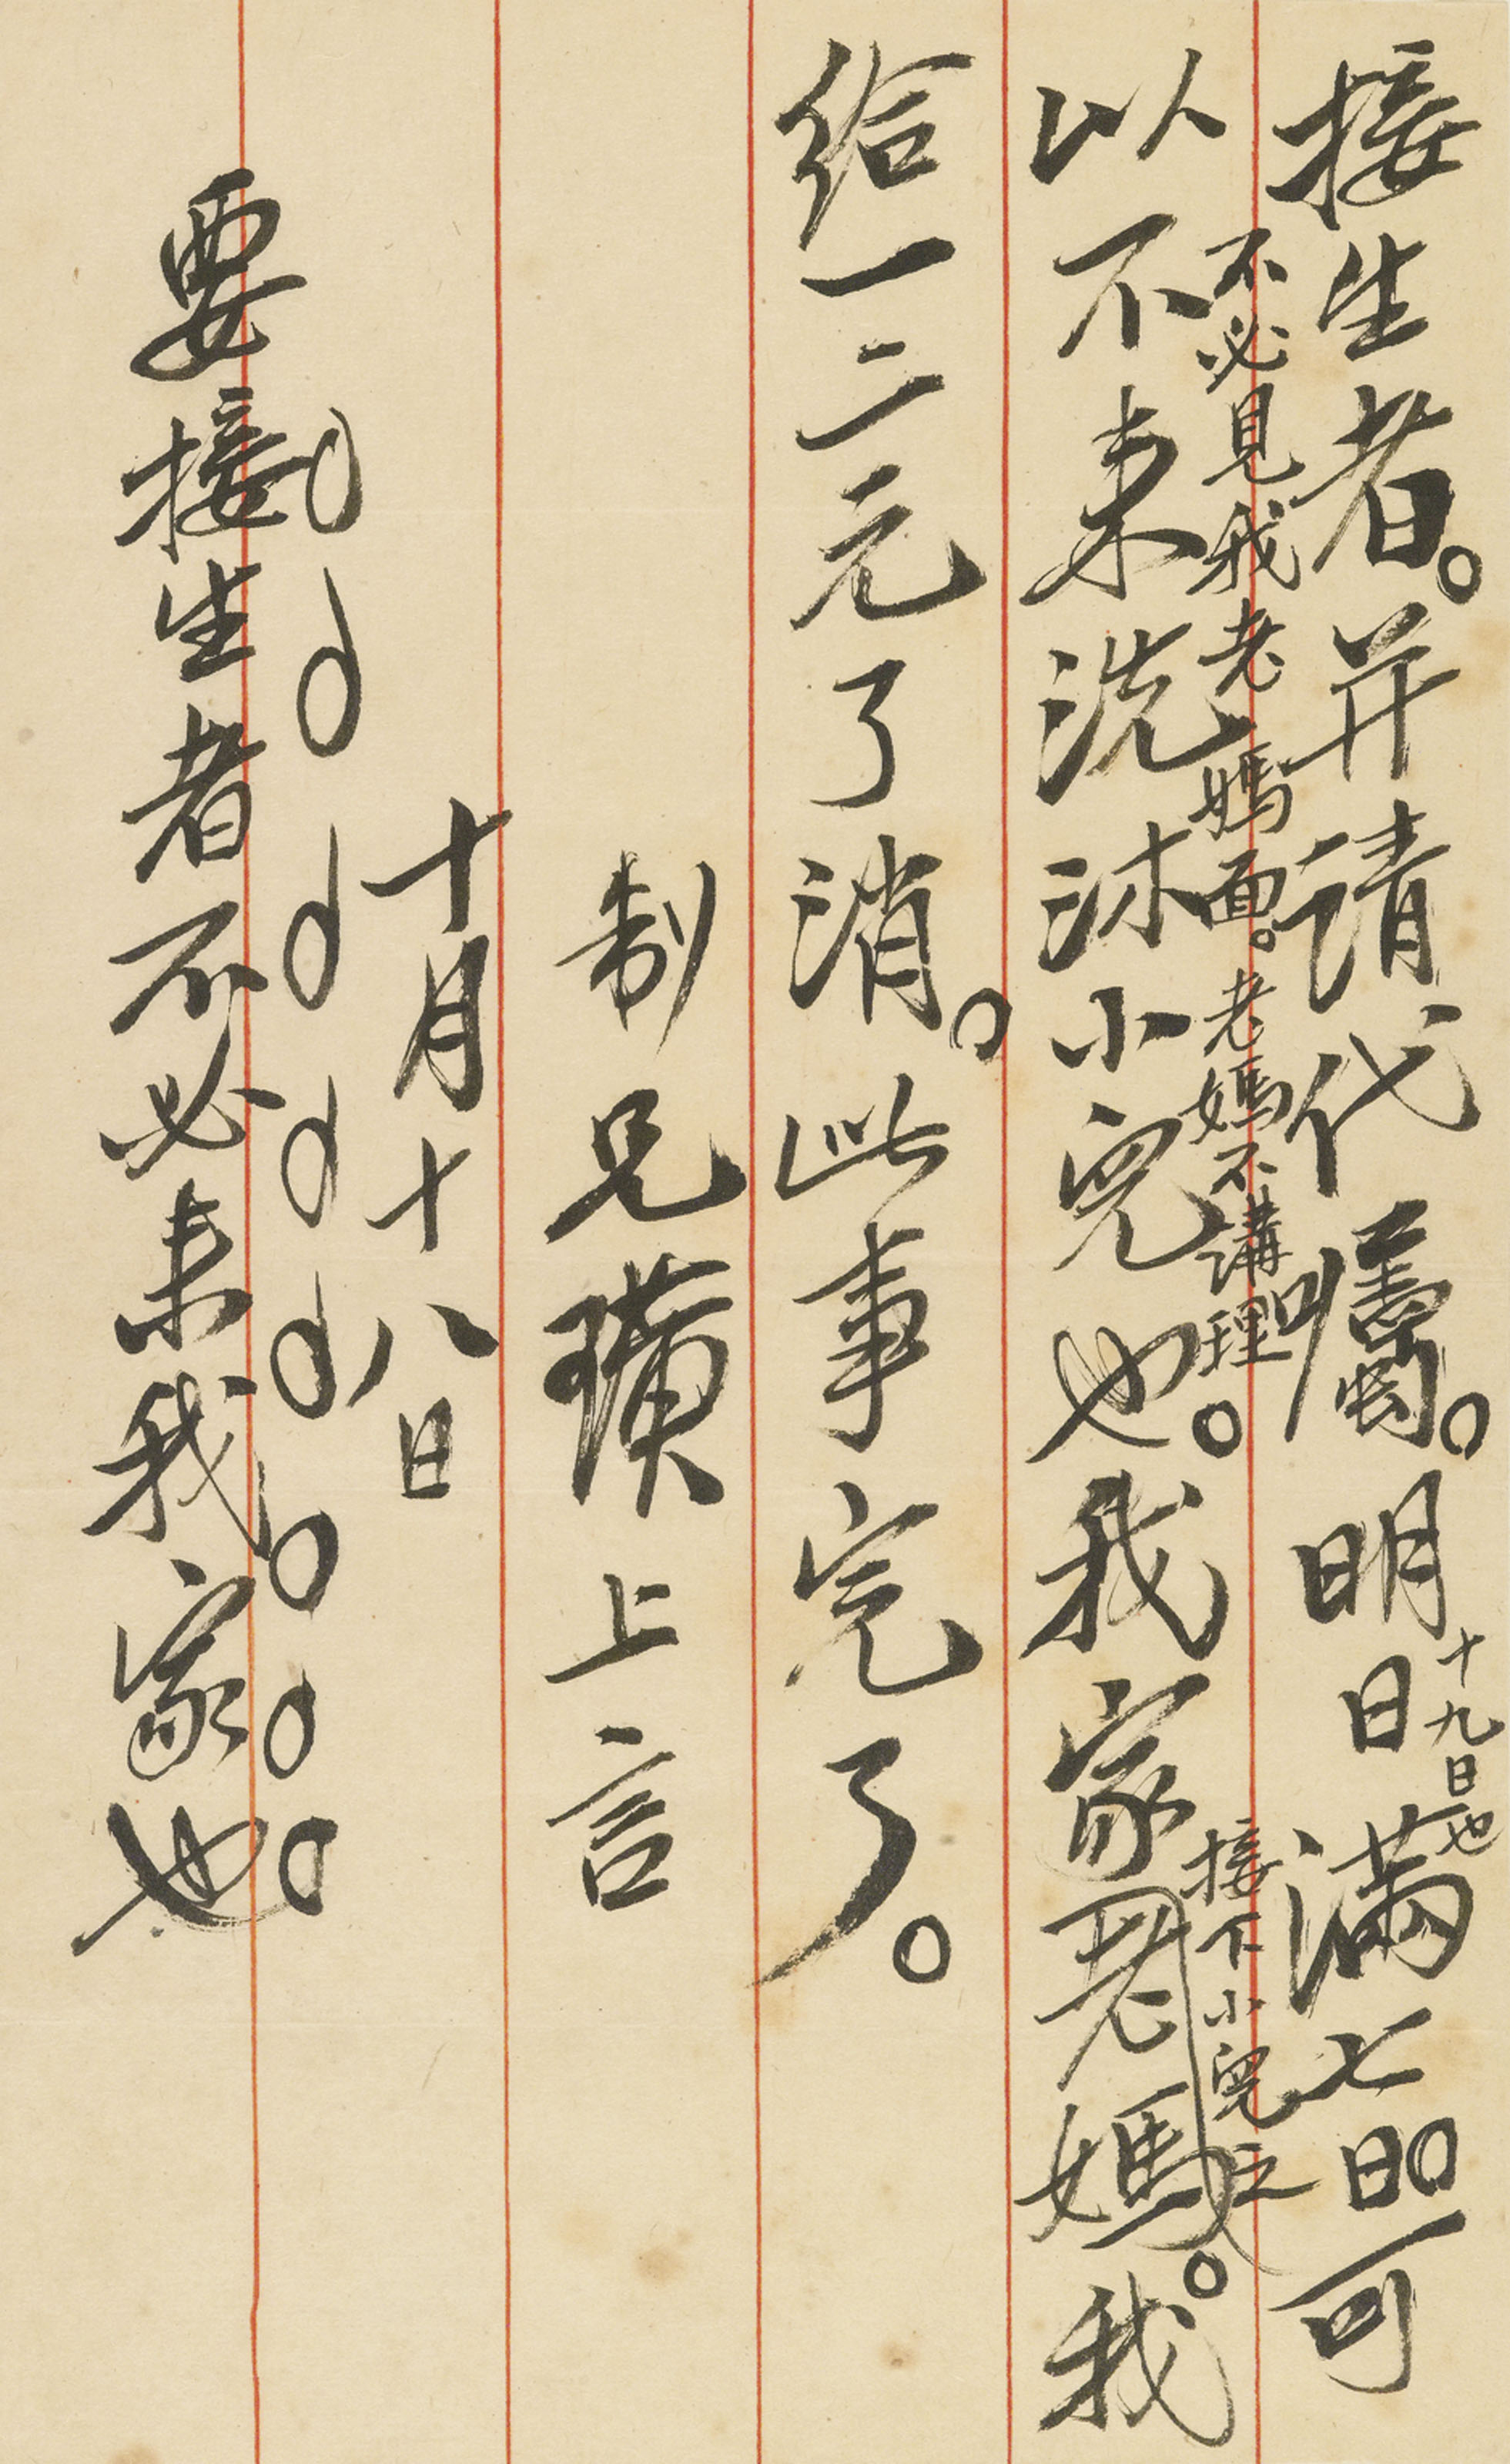 接生者。并請代囑。明日滿七日。可
十九日也
不必見我老媽面。老媽不講理。
接下小兒之
以不來洗沐小兒也。我家老媽。我
給一二元了消。此事完了。
制兄璜上言
十月十八日
要接生者不必來我家也